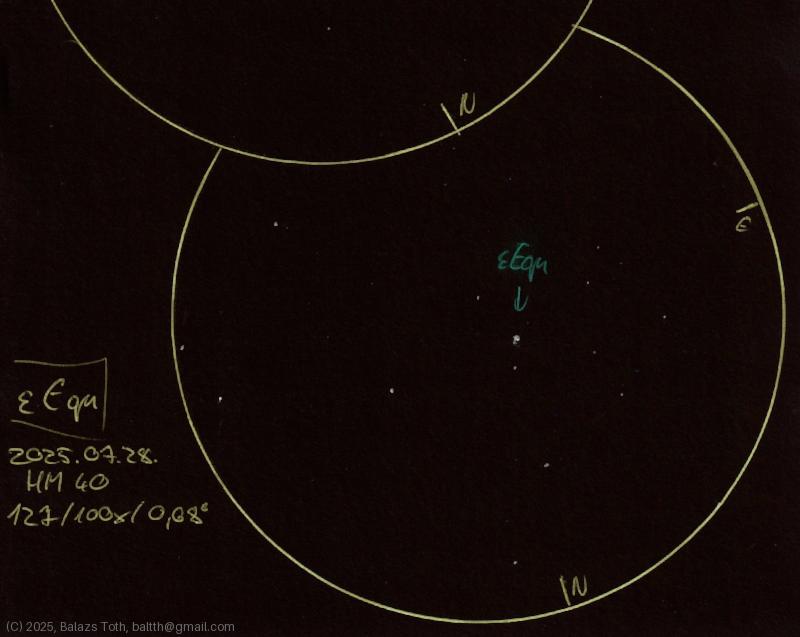 N
E
εEqu
↓
ε Equ
2025.07.28.
HM 40
127/100x/0,68°
N
(C) 2025, Balazs Toth, baltth@gmail.com